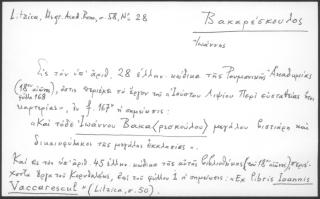 Litzica, Msgr. Acad. Rom, σ. 58, Nο 28
Βακαρέσκουλος
Ἰωάννης
Εἰς τὸν ὑπ' ἀριθ. 28 ἑλλην. κώδικα τῆς Ρουμανικῆς Ἀκαδημίας
(18ου αἰῶνος, φύλλα 168), ὅστις περιέχει τὸ ἔργον τοῦ Ἰούστου Λιψίου Περὶ εὐσταθείας
καρτερίας, ἐν f. 167r ἡ σημείωσις:
«Καὶ τόδε Ἰωάννου Βακα(ρεσκούλου) μεγάλου βιστιάρη καὶ
δικαιοφύλακος τῆς μεγάλης ἐκκλησίας».
Καὶ εἰς τὸν ὑπ' ἀριθ. 45 ἑλλην. κώδικα τῆς αὐτῆς βιβλιοθήκης (τοῦ 18ου αἰῶνος), περιέ-
χοντα ἔργα τοῦ Κορυδαλέως, ἐπὶ τοῦ φύλλου 1 ἡ σημείωσις: «Ex libris Ioannis
Vaccarescul» (Litzica, σ. 50).